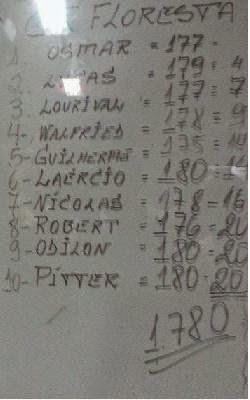 FLORESTA
1. OSMAR = 177 -
2. LUCAS = 179 = 4
3. LOURIVAL = 177 = 7
4-WALFRIED = 178 = 9
5-GUILHERME = 175 = 10
6-LAÉRCIO = 180 = 16
7-NICOLAS = 178 = 16
8-ROBERT = 176 = 20
9-ODILON = 180 = 20
10-PITTER = 180 - 20
1.780